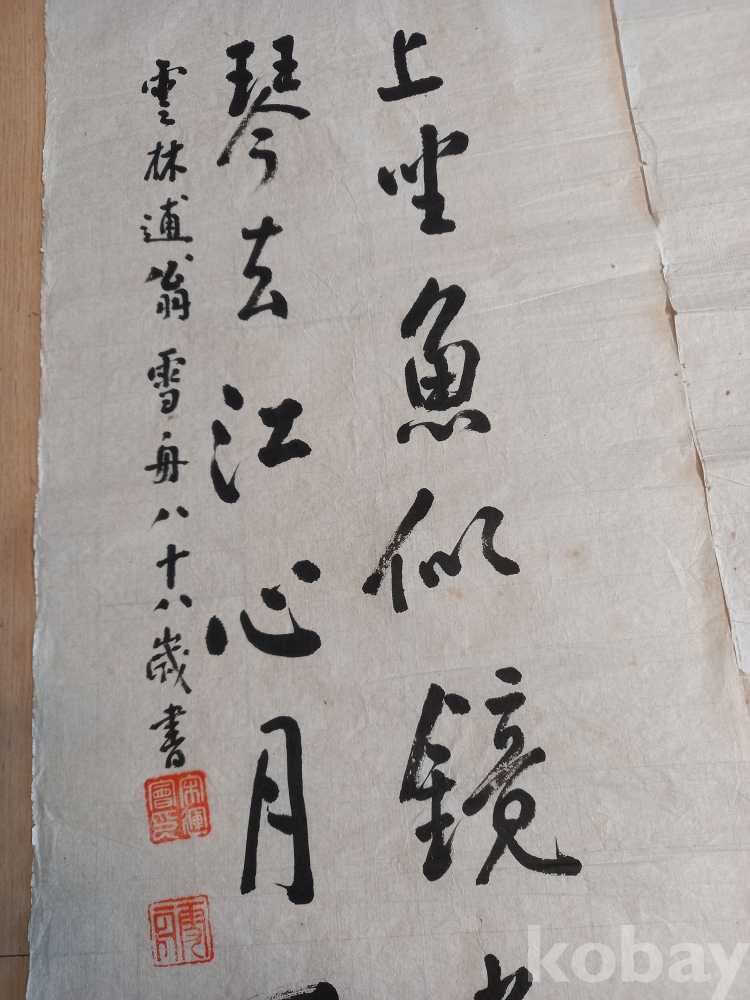 上坐魚似鏡
琴去江心月
雲林逋翁雪舟八十八歲書
kobay